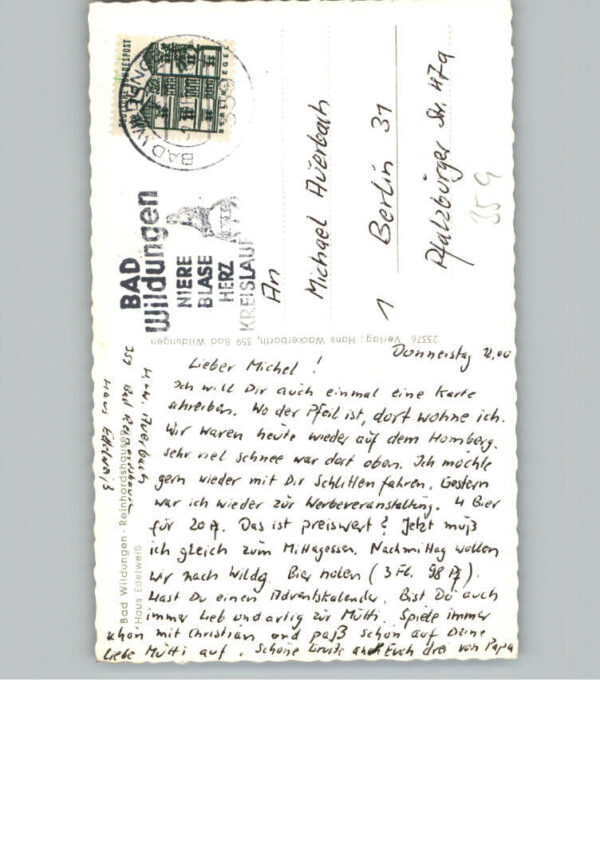 DEUTSCHE BUNDESPOST
BAD WILDUNGEN
359
BAD
Wildungen
NIERE
BLASE
HERZ
KREISLAUF
An
Michael Auerbach
1 Berlin 31
Pfalzburger Str. 47a
359
23576 Verlag: Hans Wackerbarth, 359 Bad Wildungen
Donnerstag 12.00
Lieber Michel !
Ich will Dir auch einmal eine Karte
schreiben. Wo der Pfeil ist, dort wohne ich.
Wir waren heute wieder auf dem Homberg.
Sehr viel Schnee war dort oben. Ich möchte
gern wieder mit Dir Schlitten fahren. Gestern
war ich wieder zur Werbeveranstaltung. 4 Bier
für 20 Pf. Das ist preiswert? Jetzt muß
ich gleich zum Mittagessen. Nachmittag wollen
wir nach Wildg. Bier holen (3 Fl. 98 Pf).
Hast Du einen Adventskalender. Bist Du auch
immer lieb und artig zur Mutti. Spiele immer
schön mit Christian und paß schön auf Deine
liebe Mutti auf. Schöne Grüße an Euch drei von Papa
Auerbach
359 Bad Reinhardshausen
Haus Edelweiß
Bad Wildungen - Reinhardshausen
Haus Edelweiß